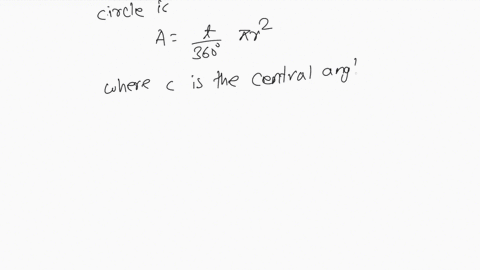 circle is
A = t/360° πr²
where c is the central ang